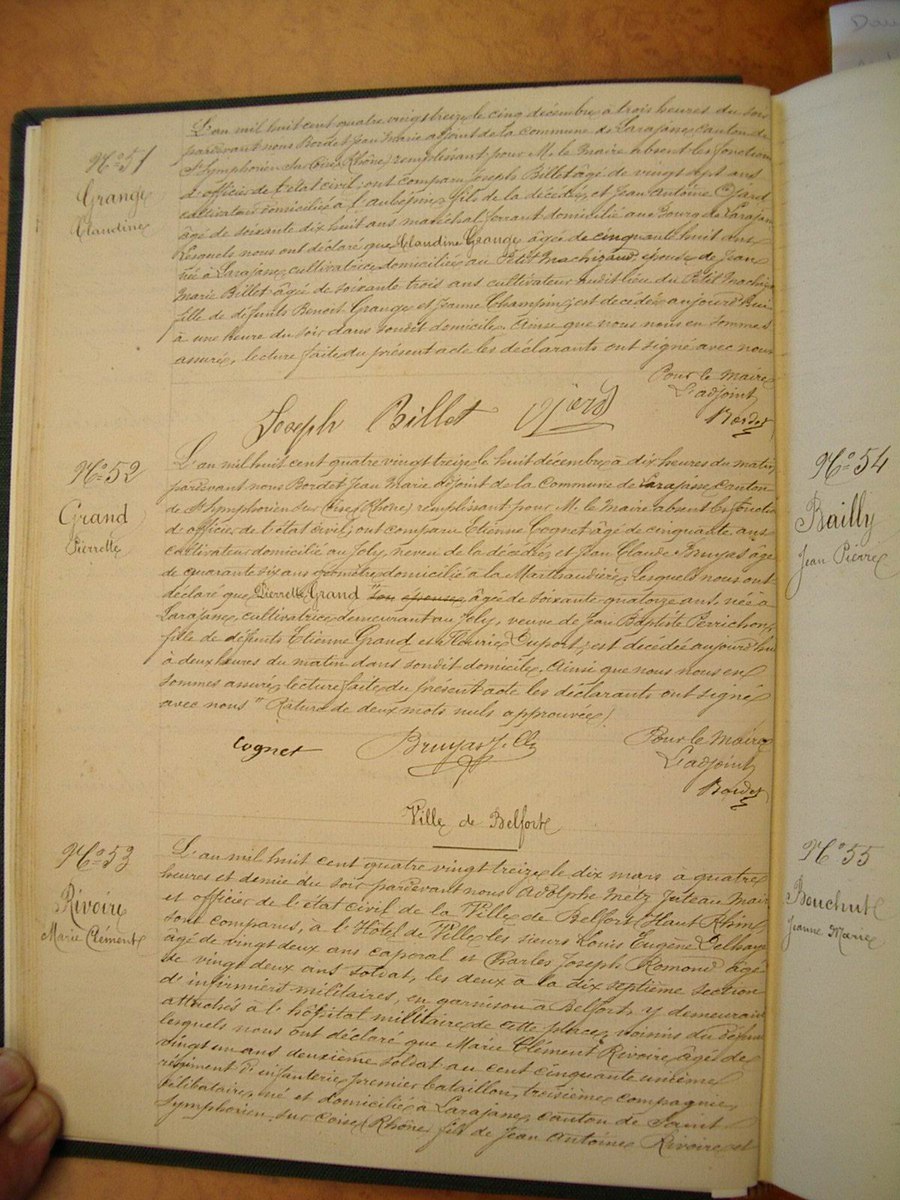 N° 51
Grange
Claudine
L'an mil huit cent quatre vingt treize le cinq décembre à trois heures du soir
pardevant nous Bordet Jean Marie adjoint de la Commune de Larajasse Canton de
St Symphorien sur Coise (Rhône) remplissant pour M. le Maire absent les fonctions
d'officier de l'état civil; ont comparu Joseph Billet âgé de vingt sept ans
cultivateur domicilié à l'aubépin fils de la décédée, et Jean Antoine
âgé de soixante dix huit ans maréchal ferrant domicilié au Bourg de Larajasse
Lesquels nous ont déclaré que Claudine Grange âgée de cinquante huit ans
née à Larajasse, cultivatrice domiciliée au Petit épouse de Jean
Marie Billet âgé de soixante trois ans cultivateur audit lieu du Petit
fille de défunts Benoit Grange et Jeanne Champin; est décédée aujourd'hui
à une heure du soir dans sondit domicile. Ainsi que nous nous en sommes
assuré, lecture faite du présent acte les déclarants ont signé avec nous
Pour le Maire
L'adjoint
Joseph Billet
Bordet
N° 52
Grand
Pierrette
L'an mil huit cent quatre vingt treize le huit décembre à dix heures du matin
pardevant nous Bordet Jean Marie adjoint de la Commune de Larajasse Canton
de St Symphorien sur Coise (Rhône) remplissant pour M. le Maire absent les fonctions
d'officier de l'état civil; ont comparu Etienne Cognet âgé de cinquante ans
cultivateur domicilié au Joly, neveu de la décédée et Jean Claude Bruyas âgé
de quarante six ans géomètre domicilié à la Marthaudière Lesquels nous ont
déclaré que Pierrette Grand âgée de soixante quatorze ans, née à
Larajasse, cultivatrice demeurant au Joly, veuve de Jean Baptiste Perrichon,
fille de défunts Etienne Grand et Fleurie Dupont; est décédée aujourd'hui
à deux heures du matin dans sondit domicile. Ainsi que nous nous en
sommes assuré, lecture faite du présent acte les déclarants ont signé
avec nous " Rature de deux mots nuls approuvée /
Cognet
Bruyas
Pour le Maire
L'adjoint
Bordet
Ville de Belfort
N° 53
Rivoire
Marie Clément
L'an mil huit cent quatre vingt treize le dix mars à quatre
heures et demie du soir pardevant nous Adolphe Metz Juteau Maire
et officier de l'état civil de la Ville de Belfort (Haut Rhin)
sont comparus, à l'Hôtel de Ville les sieurs Louis Eugène Delhaye
âgé de vingt deux ans caporal et Charles Joseph Romond âgé
de vingt deux ans soldat, les deux à la dix septième section
d'infirmiers militaires, en garnison à Belfort y demeurant
attachés à l'hôpital militaire de cette place, voisins du défunt
lesquels nous ont déclaré que Marie Clément Rivoire âgé de
vingt un ans deuxième soldat au cent cinquante unième
régiment d'infanterie, premier bataillon, troisième compagnie,
célibataire, né et domicilié à Larajasse, canton de Saint
Symphorien sur Coise (Rhône) fils de Jean Antoine Rivoire et
N° 54
Bailly
Jean Pierre
N° 55
Bouchut
Jeanne Marie